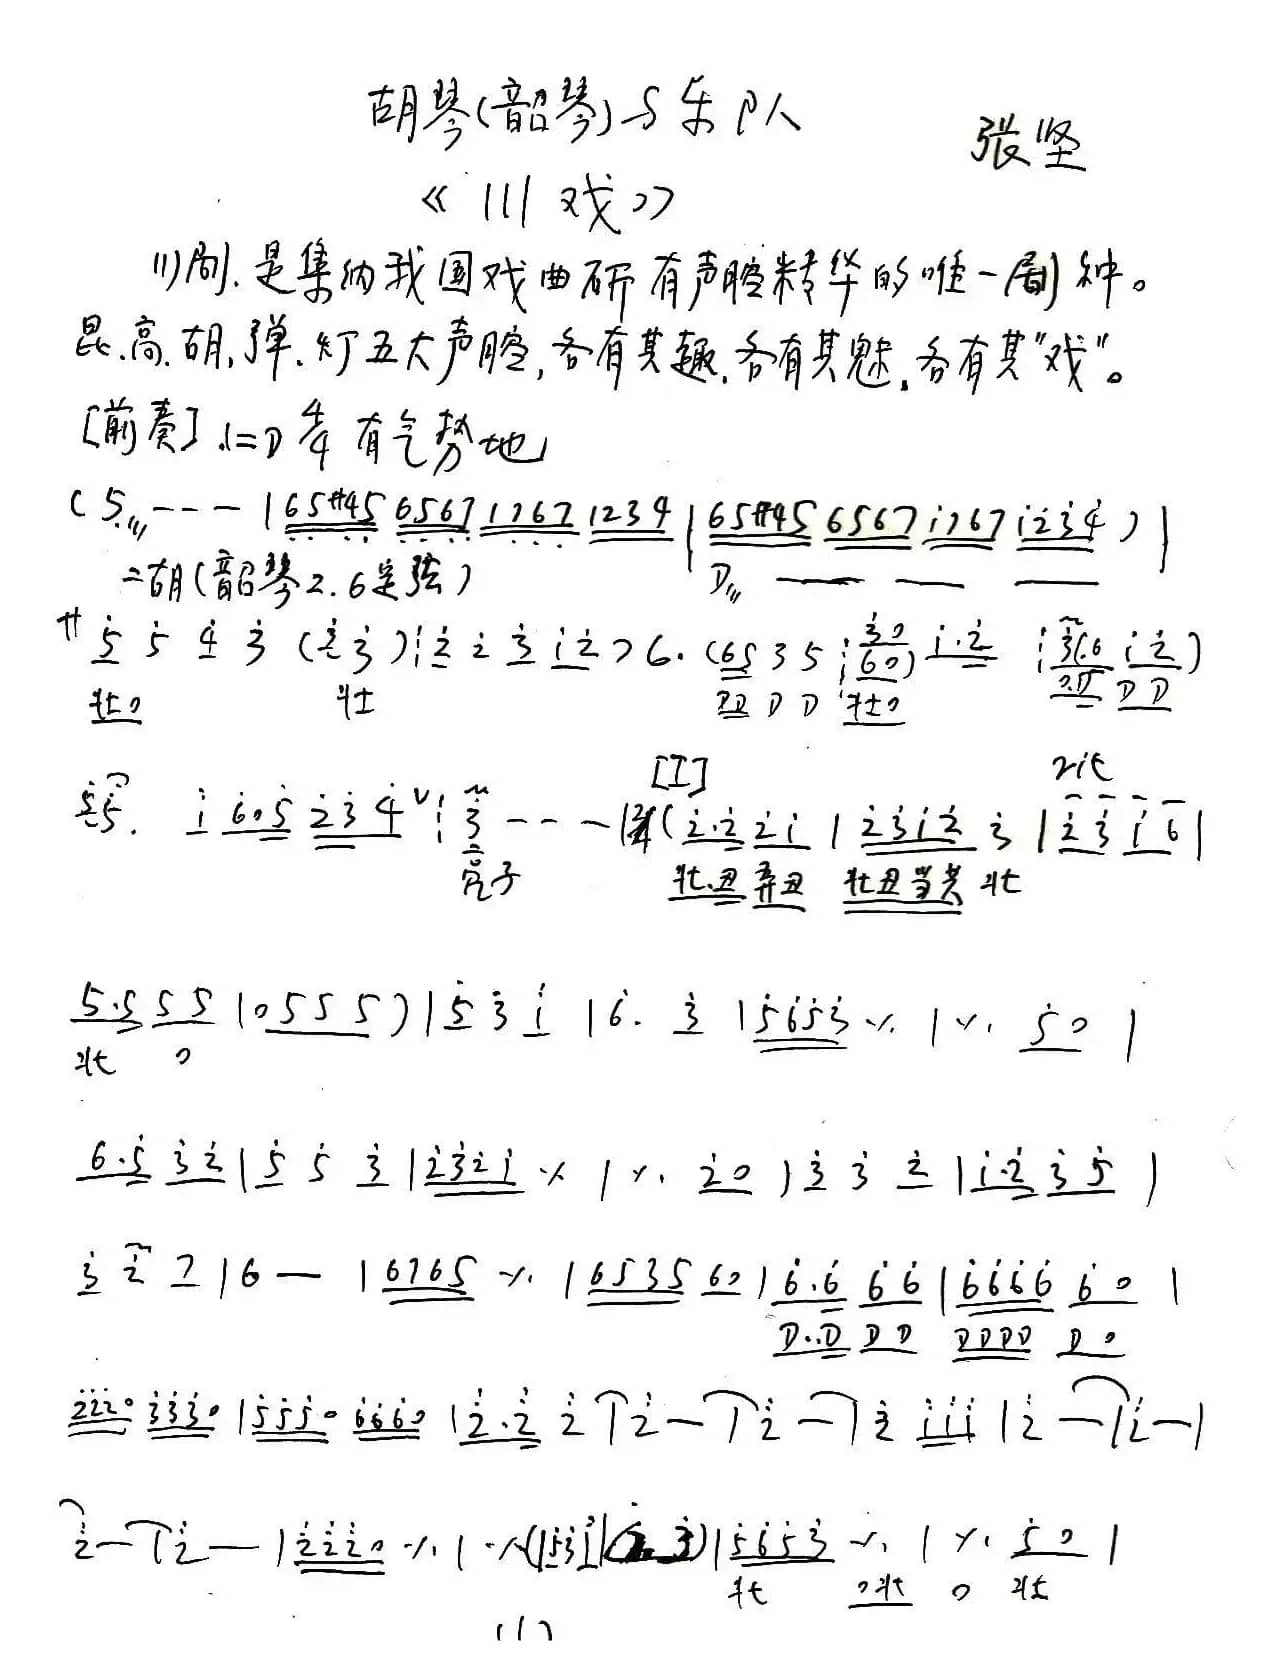 胡琴(韶琴)与乐队
张坚
《川戏》
川剧.是集纳我国戏曲所有声腔精华的唯一剧种。
昆.高.胡,弹.灯五大声腔,各有其趣,各有其魅,各有其"戏"。
[前奏] 1=D 4/4 有气势地
(5 --- | 65#45 6567 1767 1234 | 65#45 6567 i767 i234 ) |
二胡(韶琴2.6定弦) D
サ 5 5 4 3 ( 3 ) 2 2 3 i 2 7 6. (65 35 30 60) i.2 i 2)
壮0 壮 DD D D 壮0 D D
55. i 60 5 2 3 4 ∨ 3 --- 2/4 ( 2.2 2i | 23i2 3 | 2 3 i 6 |
[I] rit
亮子 壮.丑 弄丑 壮丑 壮
5.5 55 | 0555 ) | 5 3 i | 6. 3 | 5653 ٪ | ٪ 50 |
壮 0
6.5 32 | 5 5 3 | 232i ٪ | ٪ 20 | 3 3 2 | i.2 35 |
3 2 7 | 6 — | 6765 ٪ | 6535 60 | 6.6 66 | 6666 60 |
D..D DD DDDD D0
2220 3330 | 5550 6660 | 2.2 2 | 2 — | 2 — | 2 iii | 2 — | 2 — |
2 — | 2 — | 2220 ٪ | ٪ (| 53i | 3) | 5653 ٪ | ٪ 50 |
壮 0壮 0 壮
(1)